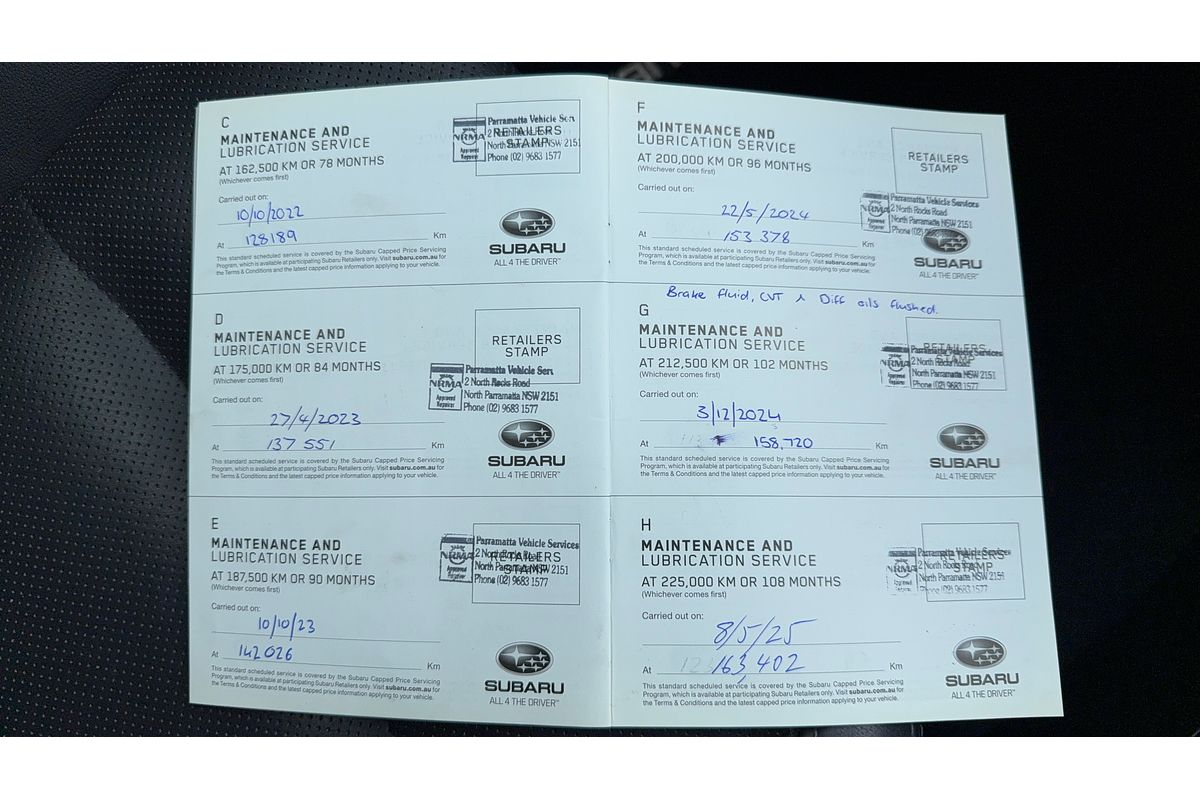 C
MAINTENANCE AND
LUBRICATION SERVICE
AT 162,500 KM OR 78 MONTHS
(Whichever comes first)
Carried out on:
10/10/2022
At 128189 Km
This standard scheduled service is covered by the Subaru Capped Price Servicing
Program, which is available at participating Subaru Retailers only. Visit subaru.com.au for
the Terms & Conditions and the latest capped price information applying to your vehicle.
RETAILERS
STAMP
NRMA
Approved
Repairer
Parramatta Vehicle Ser
2 North Rocks Road
North Parramatta NSW 2151
Phone (02) 9683 1577
SUBARU
ALL 4 THE DRIVER™
D
MAINTENANCE AND
LUBRICATION SERVICE
AT 175,000 KM OR 84 MONTHS
(Whichever comes first)
Carried out on:
27/4/2023
At 137 551 Km
This standard scheduled service is covered by the Subaru Capped Price Servicing
Program, which is available at participating Subaru Retailers only. Visit subaru.com.au for
the Terms & Conditions and the latest capped price information applying to your vehicle.
RETAILERS
STAMP
NRMA
Approved
Repairer
Parramatta Vehicle Serv
2 North Rocks Road
North Parramatta NSW 2151
Phone (02) 9683 1577
SUBARU
ALL 4 THE DRIVER™
E
MAINTENANCE AND
LUBRICATION SERVICE
AT 187,500 KM OR 90 MONTHS
(Whichever comes first)
Carried out on:
10/10/23
At 142026 Km
This standard scheduled service is covered by the Subaru Capped Price Servicing
Program, which is available at participating Subaru Retailers only. Visit subaru.com.au for
the Terms & Conditions and the latest capped price information applying to your vehicle.
RETAILERS
STAMP
NRMA
Approved
Repairer
Parramatta Vehicle Services
2 North Rocks Road
North Parramatta NSW 2151
Phone (02) 9683 1577
SUBARU
ALL 4 THE DRIVER™
F
MAINTENANCE AND
LUBRICATION SERVICE
AT 200,000 KM OR 96 MONTHS
(Whichever comes first)
Carried out on:
22/5/2024
At 153 378 Km
This standard scheduled service is covered by the Subaru Capped Price Servicing
Program, which is available at participating Subaru Retailers only. Visit subaru.com.au for
the Terms & Conditions and the latest capped price information applying to your vehicle.
RETAILERS
STAMP
NRMA
Approved
Repairer
Parramatta Vehicle Services
2 North Rocks Road
North Parramatta NSW 2151
Phone (02)
SUBARU
ALL 4 THE DRIVER™
Brake fluid, CVT & Diff oils flushed.
G
MAINTENANCE AND
LUBRICATION SERVICE
AT 212,500 KM OR 102 MONTHS
(Whichever comes first)
Carried out on:
3/12/2024
At 158,720 Km
This standard scheduled service is covered by the Subaru Capped Price Servicing
Program, which is available at participating Subaru Retailers only. Visit subaru.com.au for
the Terms & Conditions and the latest capped price information applying to your vehicle.
RETAILERS
STAMP
NRMA
Approved
Repairer
Parramatta Vehicle Services
2 North Rocks Road
North Parramatta NSW 2151
Phone (02) 9683 1577
SUBARU
ALL 4 THE DRIVER™
H
MAINTENANCE AND
LUBRICATION SERVICE
AT 225,000 KM OR 108 MONTHS
(Whichever comes first)
Carried out on:
8/5/25
At 163,402 Km
This standard scheduled service is covered by the Subaru Capped Price Servicing
Program, which is available at participating Subaru Retailers only. Visit subaru.com.au for
the Terms & Conditions and the latest capped price information applying to your vehicle.
RETAILERS
STAMP
NRMA
Approved
Repairer
Parramatta Vehicle Services
2 North Rocks Road
North Parramatta NSW 2151
Phone (02) 9683 1577
SUBARU
ALL 4 THE DRIVER™